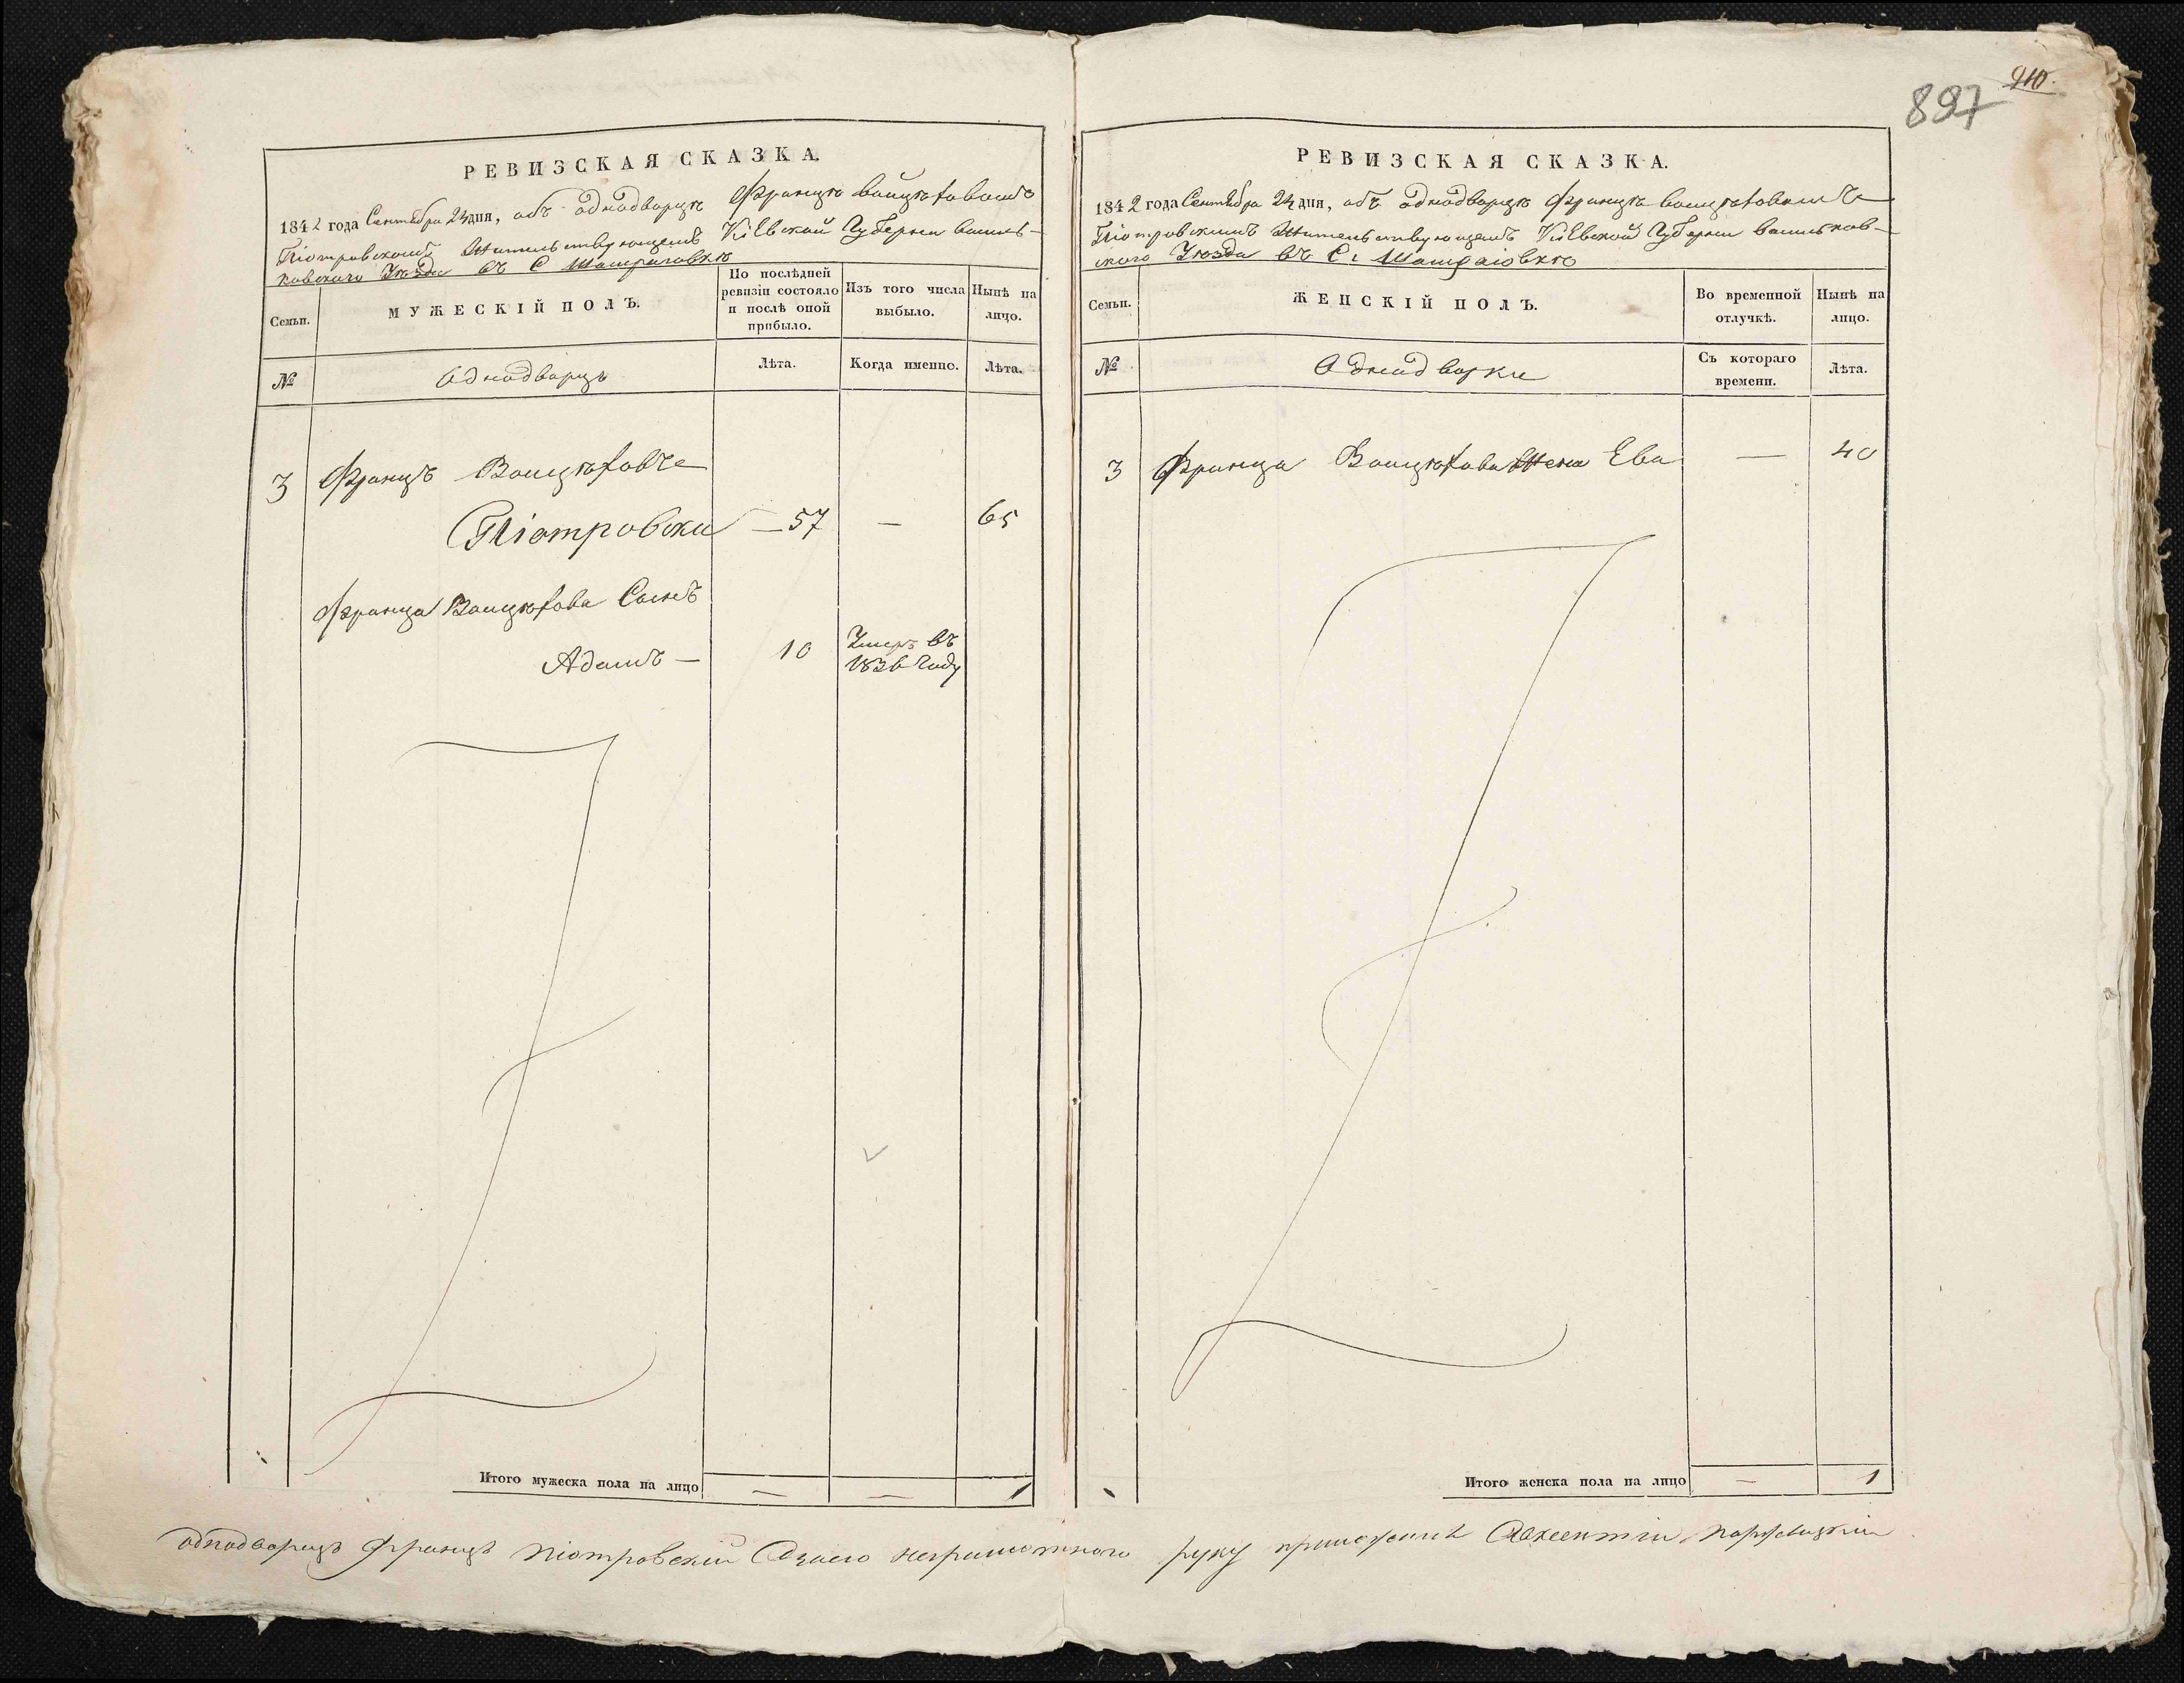 910.
897
РЕВИЗСКАЯ СКАЗКА.
1842 года Сентября 24 дня, объ однодворцѣ Францѣ Войцѣховомъ
Піотровскомъ Жительствующемъ Кіевской Губерніи Василь-
ковскаго Уѣзда въ С
Семьи.
МУЖЕСКІЙ ПОЛЪ.
По послѣдней
ревизіи состояло
и послѣ оной
прибыло.
Изъ того числа
выбыло.
Нынѣ на
лицо.
№
Однодворцъ
Лѣта.
Когда именно.
Лѣта.
3 Францъ Воицѣховъ
Піотровски — 57 — 65
Франца Воицѣхова Сынъ
Адамъ — 10 Умеръ въ
1836 году
Итого мужеска пола на лицо — — 1
РЕВИЗСКАЯ СКАЗКА.
1842 года Сентября 24 дня, объ однодворцѣ Францѣ Воицѣховомъ
Піотровскимъ Жительствующемъ Кіевской Губерніи Васильков-
скаго Уѣзда въ С.
Семьи.
ЖЕНСКІЙ ПОЛЪ.
Во временной
отлучкѣ.
Нынѣ на
лицо.
№
Однодворки
Съ котораго
времени.
Лѣта.
3 Франца Воицѣхова Жена Ева — 40
Итого женска пола на лицо — 1
однодворецъ Францъ Піотровскій неграмотного руку приложилъ